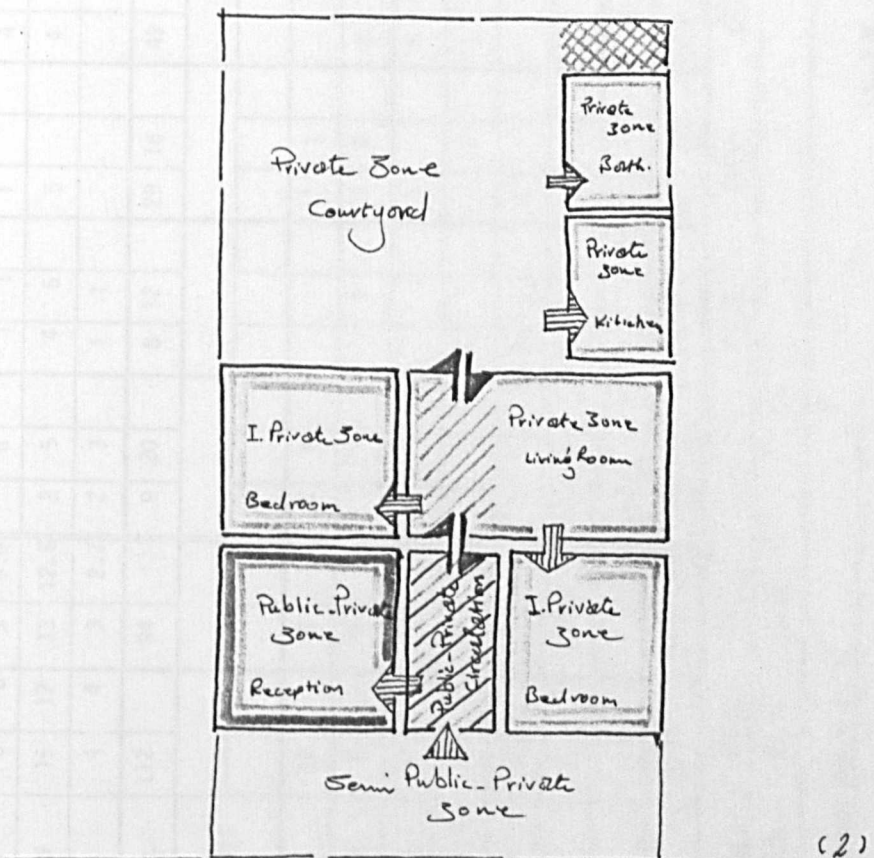 Private Zone
Bath.
Private Zone
Courtyard
Private
Zone
Kitchen
I. Private Zone
Bedroom
Private Zone
Living Room
Public-Private
Zone
Reception
Public-Private
Circulation
I. Private
Zone
Bedroom
Semi Public-Private
Zone
(2)